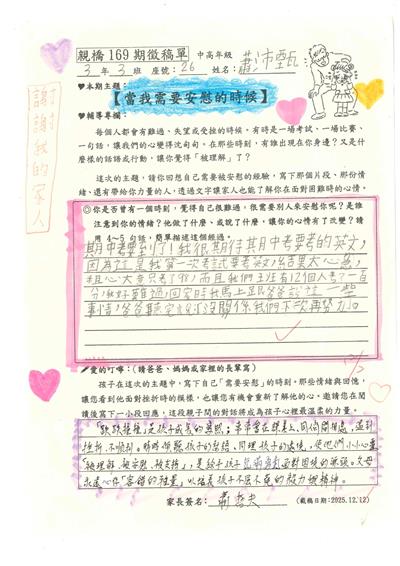 親橋169期徵稿單 中高年級
3年3班 座號：26 姓名：蕭沛甄
♥本期主題：
【當我需要安慰的時候】
♥輔導專欄：
每個人都會有難過、失望或受挫的時候。有時是一場考試、一場比賽、
一句話，讓我們的心變得沈甸甸。在那些時刻，有誰出現在你身邊？又是什
麼樣的話語或行動，讓你覺得「被理解」了？
這次的主題，請你回想自己需要被安慰的經驗，寫下那個片段、那份情
緒，還有帶給你力量的人，透過文字讓家人也能了解你在面對困難時的心情。
◎你是否曾有一個時刻，覺得自己很難過、很需要別人來安慰你呢？是誰
注意到你的情緒？他做了什麼、或說了什麼，讓你的心情有了改變？請
用4~5句話，簡單描述這個經過。
期中考要到了！我很期待其中考要考的英文，
因為這是我第一次考試要考英文，結果大心
粗心大意只考了98，而且我們班有12個人考了一百
分，我好難過，回家時我馬上跟爸爸說這一些
事情，爸爸聽完說沒關係我們下次再努力。
謝謝我的家人
♥愛的叮嚀：(請爸爸、媽媽或家裡的長輩寫)
孩子在這次的主題中，寫下自己「需要安慰」的時刻。那些情緒與回憶，
讓您看到他面對挫折時的模樣，也讓您有機會重新了解他的心。邀請您在閱
讀後寫下一小段回應，這段親子間的對話將成為孩子心裡最溫柔的力量。
跌跌撞撞，是孩子成長的真照；當常常在課業上、同儕間相處，遇到
挫折、不順利。時時傾聽孩子的聲音、同理孩子的處境，使他們小小心靈
「被理解、被安慰、被支持」，是給予孩子 面對困境的 。父母
永遠心存「容錯的雅量」以培養孩子不屈不撓的毅力與精神。
家長簽名： 蕭哲夫 (截稿日期：2025.12.12)